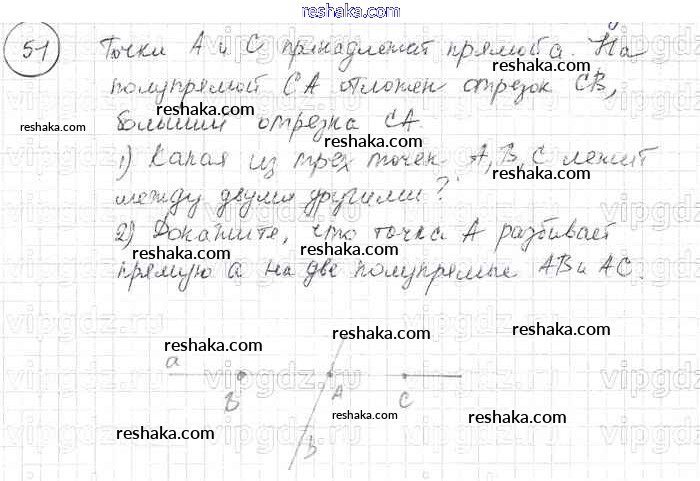 reshaka.com
51 Точки А и С принадлежат прямой а. На
полупрямой СА отложен отрезок СВ,
больший отрезка СА.
1) Какая из трех точек А, В, С лежит
между двумя другими?
2) Докажите, что точка А разбивает
прямую а на две полупрямые АВ и АС.
a
B
A
C
b
reshaka.com
reshaka.com
reshaka.com
reshaka.com
reshaka.com
reshaka.com
reshaka.com
reshaka.com
reshaka.com
reshaka.com
reshaka.com
reshaka.com
reshaka.com
vipgdz.ru
vipgdz.ru
vipgdz.ru
vipgdz.ru